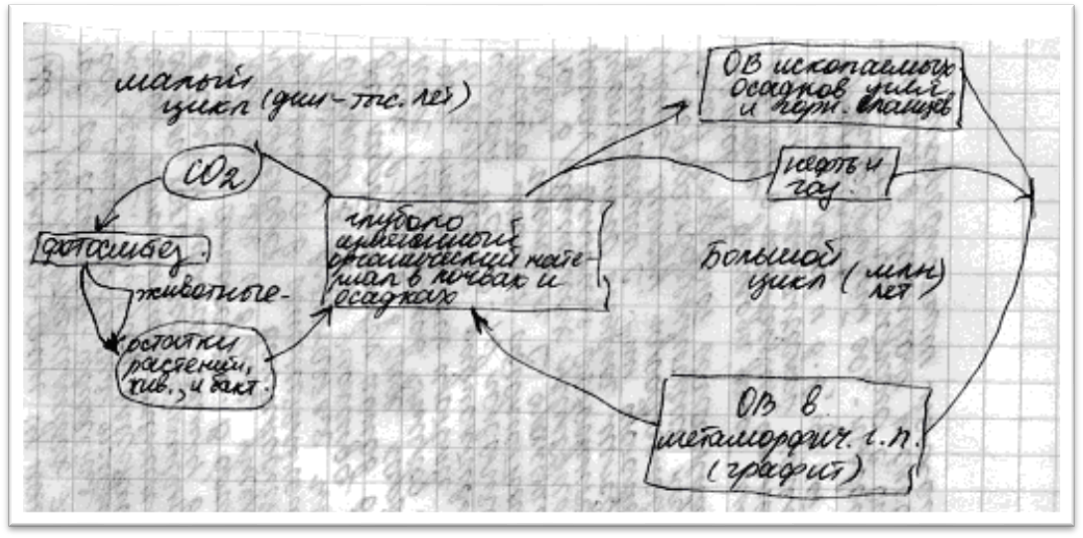 малый
цикл (дни - тыс. лет)
CO2
фотосинтез.
животные -
остатки
растений,
жив., и бакт.
глубоко
измененный
органический мате-
риал в почвах и
осадках
ОВ ископаемых
осадков угля
и горн. сланцев
нефть и
газ.
Большой
цикл (млн
лет)
ОВ в
метаморфич. г.п.
(графит)